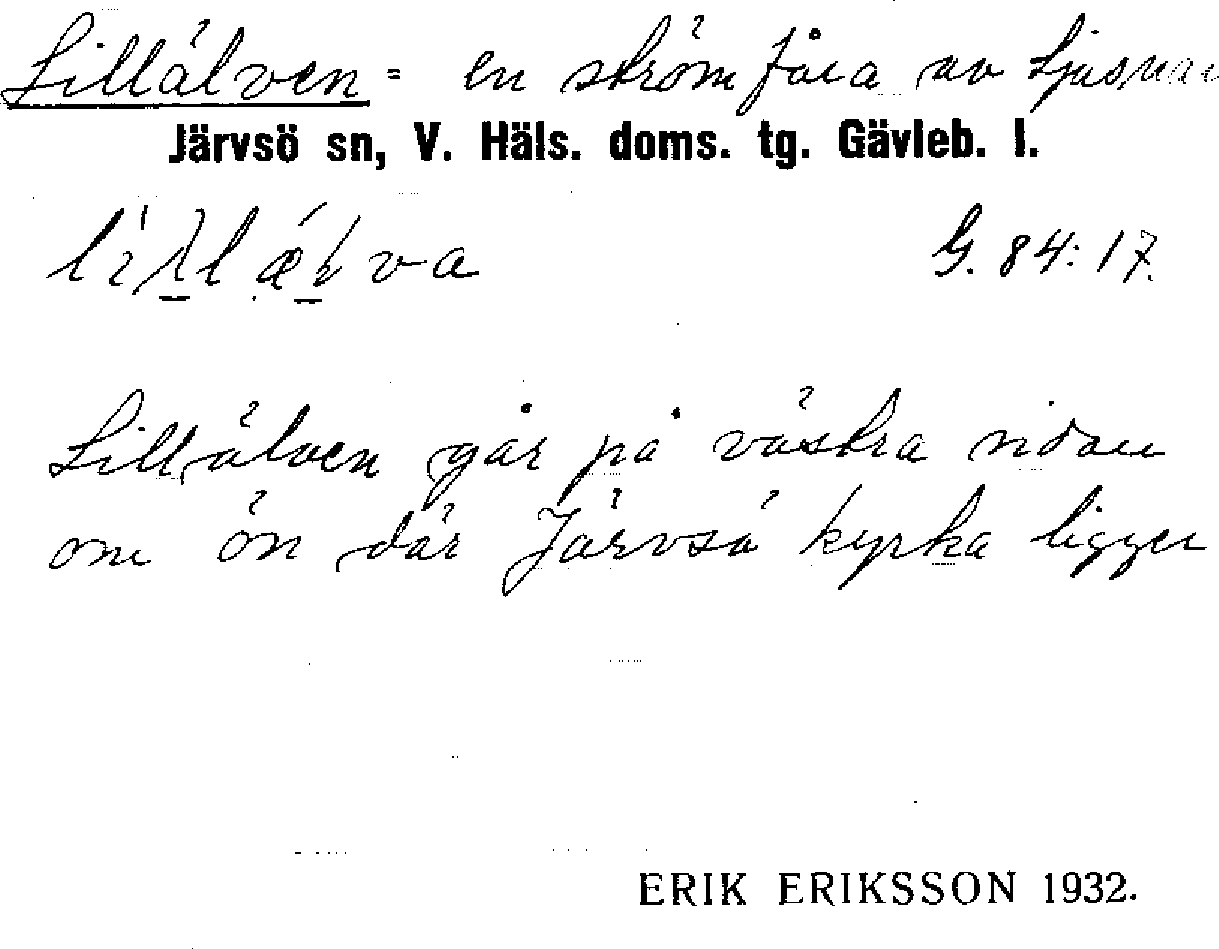 Lillälven = en strömfåra av Ljusnan
Järvsö sn, V. Häls. doms. tg. Gävleb. l.
G. 84:17.
Lillälven går på västra sidan
om ön där Järvsö kyrka ligger
ERIK ERIKSSON 1932.